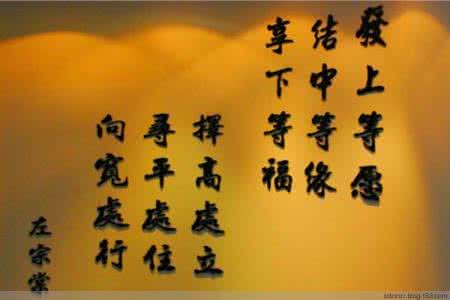 發上等愿
结中等缘
享下等福
擇高處立
尋平處住
向宽處行
左宗棠